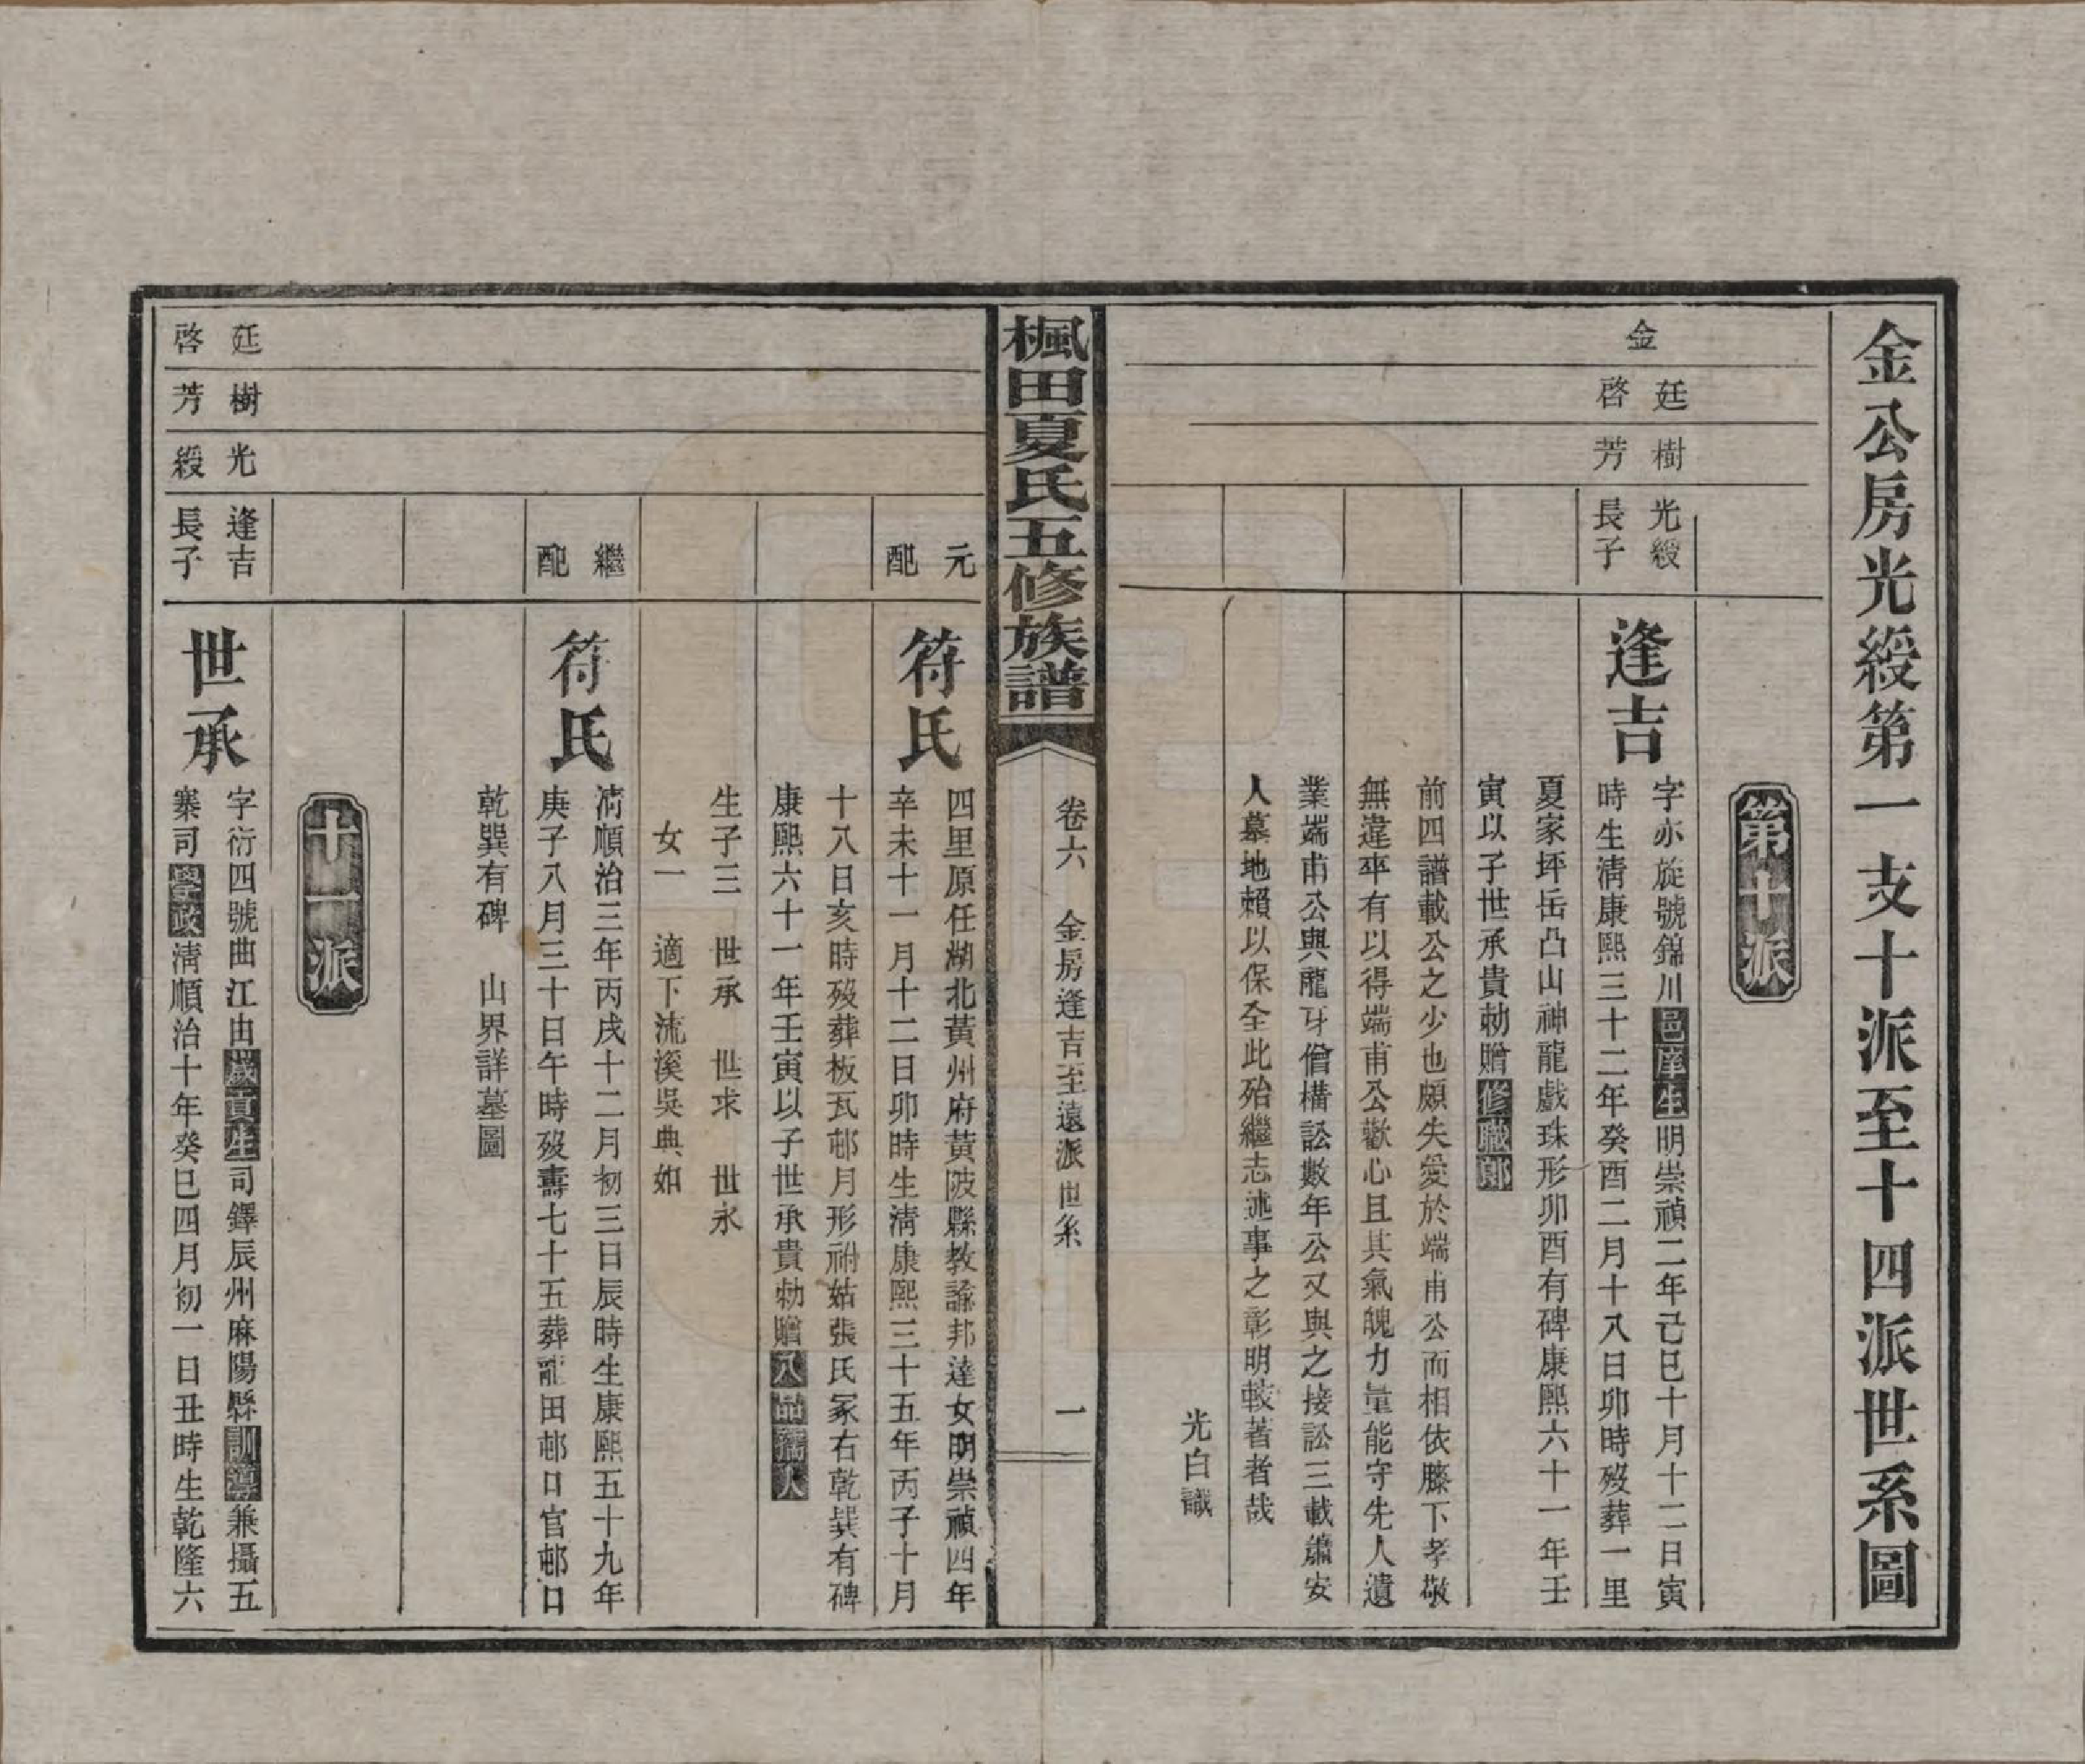 金公房光綬第一支十派至十四派世系圖
第十派
金
廷樹光綬
啓芳長子
逢吉
字亦旋號錦川邑庠生明崇禎二年己巳十月十二日寅
時生清康熙三十二年癸酉二月十八日卯時歿葬一里
夏家坪岳凸山神龍戲珠形卯酉有碑康熙六十一年壬
寅以子世承貴勅贈修職郎
前四譜載公之少也頗失愛於端甫公而相依膝下孝敬
無違卒有以得端甫公歡心且其氣魄力量能守先人遺
業端甫公與龍牙僧構訟數年公又與之接訟三載肅安
人墓地賴以保全此殆繼志述事之彰明較著者哉
光白識
楓田夏氏五修族譜
卷六 金房逢吉至遠派世系
一
元配
符氏
四里原任湖北黃州府黃陂縣教諭邦達女明崇禎四年
辛未十一月十二日卯時生清康熙三十五年丙子十月
十八日亥時歿葬板瓦邨月形祔姑張氏冢右乾巽有碑
康熙六十一年壬寅以子世承貴勅贈八品孺人
生子三 世承 世求 世永
女一 適下流溪吳典如
繼配
符氏
清順治三年丙戌十二月初三日辰時生康熙五十九年
庚子八月三十日午時歿壽七十五葬龍田邨口官邨口
乾巽有碑 山界詳墓圖
十一派
廷樹光逢吉
啓芳綬長子
世承
字衍四號曲江由歲貢生司鐸辰州麻陽縣訓導兼攝五
寨司學政清順治十年癸巳四月初一日丑時生乾隆六